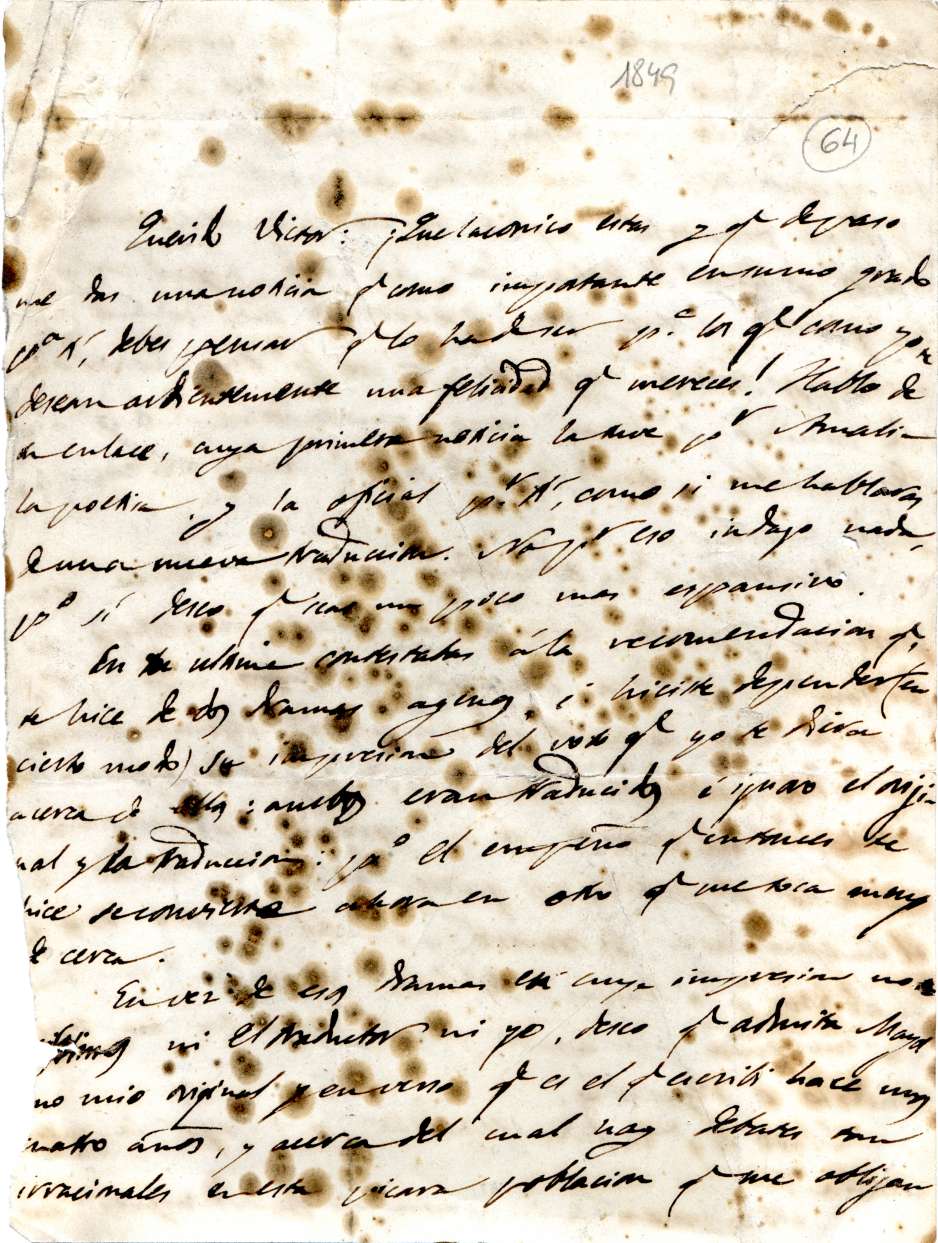 1849
64
Querido Victor: ¡Que laconico estas y qe de paso
me das una noticia qe como importante en sumo grado
pa tí, debes pensar qe lo ha de ser pa los qe como yo te
desean ardientemente una felicidad qe mereces! Hablo de
tu enlace, cuya primera noticia la tuve pr Amalia
la poetisa, y la oficial pr tí, como si me hablaras
de una nueva traduccion. No pr eso indago nada,
po sí deseo qe seas un poco mas espansivo.
En tu ultima contestabas á la recomendacion qe
te hice de dos dramas agenos, é hiciste depender (en
cierto modo) su impresion del voto qe yo te diera
acerca de ellos: ambos eran traducidos é ignoro el oriji-
nal y la traduccion: po el empeño qe entonces te
hice se convierte ahora en otro qe me toca mas
de cerca.
En vez de esos dramas en cuya impresion no
ni el traductor ni yo, deseo qe admita
uno mio original y en verso qe es el qe escribí hace unos
cuatro años, y acerca del cual hay debates tan
irracionales en esta picara poblacion qe me obligan